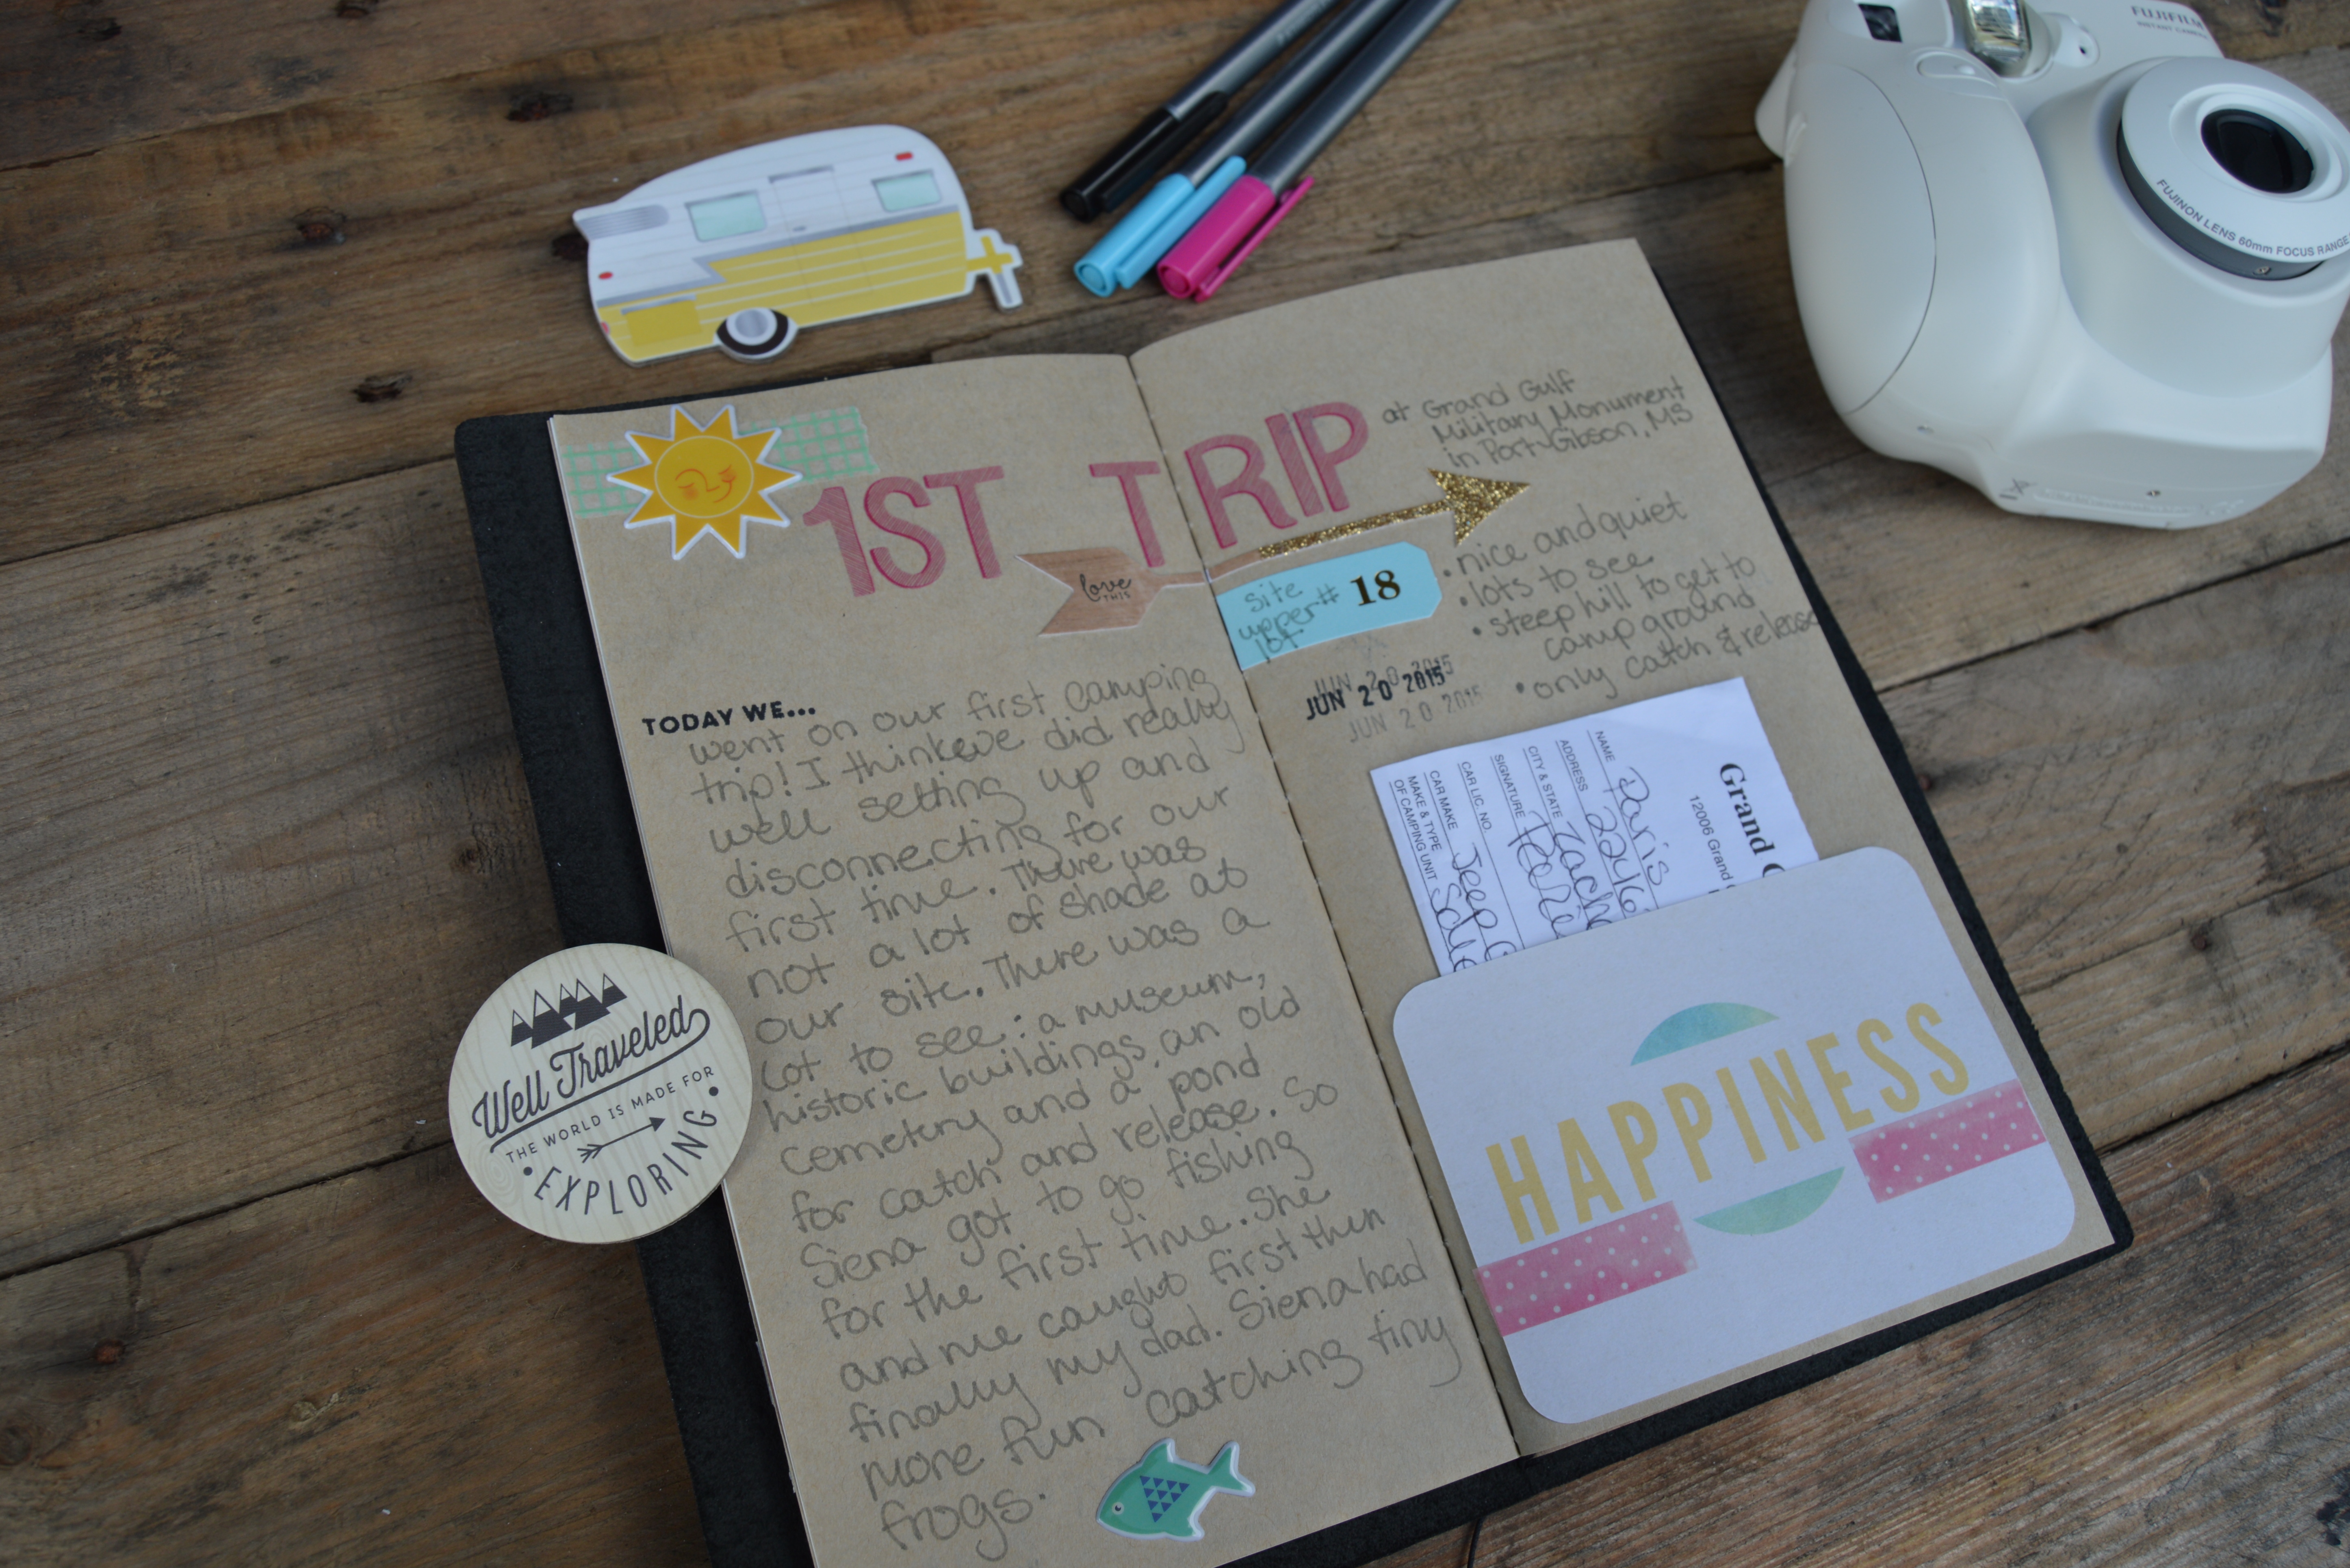 FUJIFILM
INSTANT CAMERA
FUJINON LENS 60mm FOCUS RANGE
1ST TRIP
at Grand Gulf
Military Monument
in Port Gibson, MS
love
THIS
site
upper # 18
lot
• nice and quiet
• lots to see
• steep hill to get to
camp ground
• only catch & release
JUN 20 2015
JUN 20 2015
JUN 20 2015
TODAY WE...
went on our first camping
trip! I think we did really
well setting up and
disconnecting for our
first time. There was
not a lot of shade at
our site. There was a
Lot to see: a museum,
historic buildings, an old
cemetery and a pond
for catch and release. So
Siena got to go fishing
for the first time. She
and me caught first then
finally my dad. Siena had
more fun catching tiny
frogs.
Grand
12006 Grand
NAME Paris
ADDRESS
CITY & STATE Zach
SIGNATURE
CAR LIC. NO.
CAR MAKE Jeep
MAKE & TYPE
OF CAMPING UNIT
Well Traveled
THE WORLD IS MADE FOR
• EXPLORING •
HAPPINESS